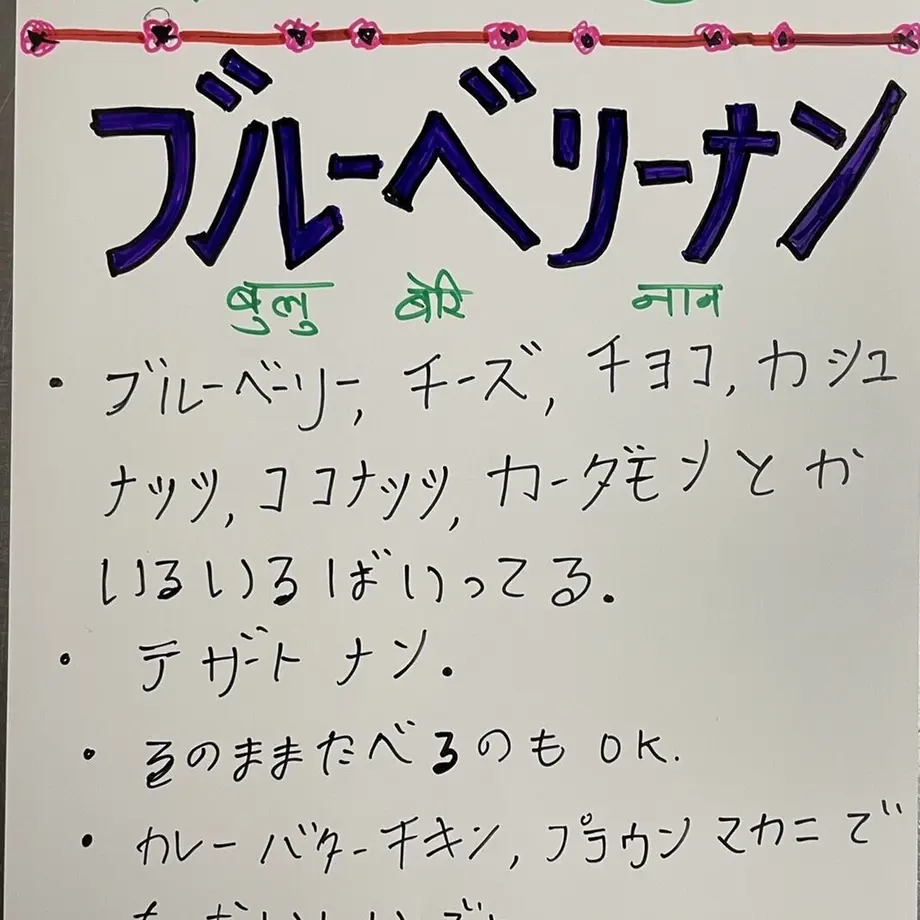 ブルーベリーナン
बुलु बेरि नान
・ブルーベリー, チーズ, チョコ, カシュ
ナッツ, ココナッツ, カーダモンとか
いるいるばいってる.
・テザートナン.
・るのままたべるのもOK.
・カレーバターチキン, プラウンマカニで